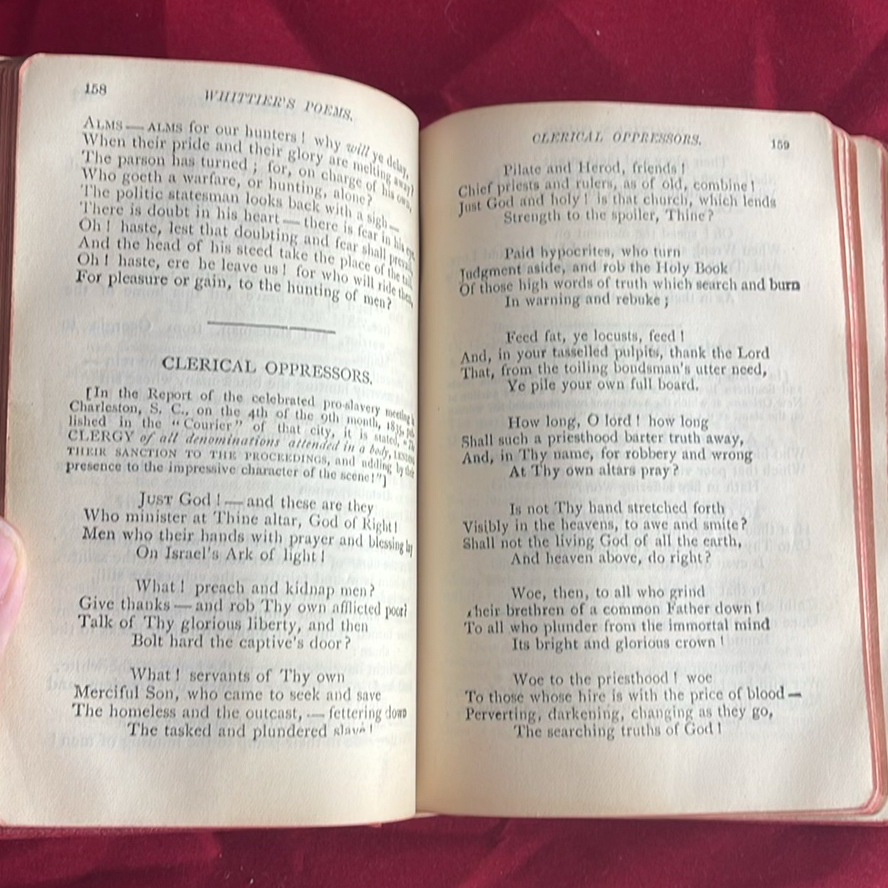 158
WHITTIER'S POEMS.
ALMS — ALMS for our hunters! why will ye delay,
When their pride and their glory are melting away?
The parson has turned; for, on charge of his own,
Who goeth a warfare, or hunting, alone?
The politic statesman looks back with a sigh —
There is doubt in his heart — there is fear in his eye.
Oh! haste, lest that doubting and fear shall prevail,
And the head of his steed take the place of the tail.
Oh! haste, ere he leave us! for who will ride then,
For pleasure or gain, to the hunting of men?
CLERICAL OPPRESSORS.
[In the Report of the celebrated pro-slavery meeting in
Charleston, S. C., on the 4th of the 9th month, 1835, pub
lished in the "Courier" of that city, it is stated, "The
CLERGY of all denominations attended in a body, LENDING
THEIR SANCTION TO THE PROCEEDINGS, and adding by their
presence to the impressive character of the scene!"]
JUST God! — and these are they
Who minister at Thine altar, God of Right!
Men who their hands with prayer and blessing lay
On Israel's Ark of light!
What! preach and kidnap men?
Give thanks — and rob Thy own afflicted poor?
Talk of Thy glorious liberty, and then
Bolt hard the captive's door?
What! servants of Thy own
Merciful Son, who came to seek and save
The homeless and the outcast, — fettering down
The tasked and plundered slave!
CLERICAL OPPRESSORS.
159
Pilate and Herod, friends!
Chief priests and rulers, as of old, combine!
Just God and holy! is that church, which lends
Strength to the spoiler, Thine?
Paid hypocrites, who turn
Judgment aside, and rob the Holy Book
Of those high words of truth which search and burn
In warning and rebuke;
Feed fat, ye locusts, feed!
And, in your tasselled pulpits, thank the Lord
That, from the toiling bondsman's utter need,
Ye pile your own full board.
How long, O lord! how long
Shall such a priesthood barter truth away,
And, in Thy name, for robbery and wrong
At Thy own altars pray?
Is not Thy hand stretched forth
Visibly in the heavens, to awe and smite?
Shall not the living God of all the earth,
And heaven above, do right?
Woe, then, to all who grind
their brethren of a common Father down!
To all who plunder from the immortal mind
Its bright and glorious crown!
Woe to the priesthood! woe
To those whose hire is with the price of blood —
Perverting, darkening, changing as they go,
The searching truths of God!